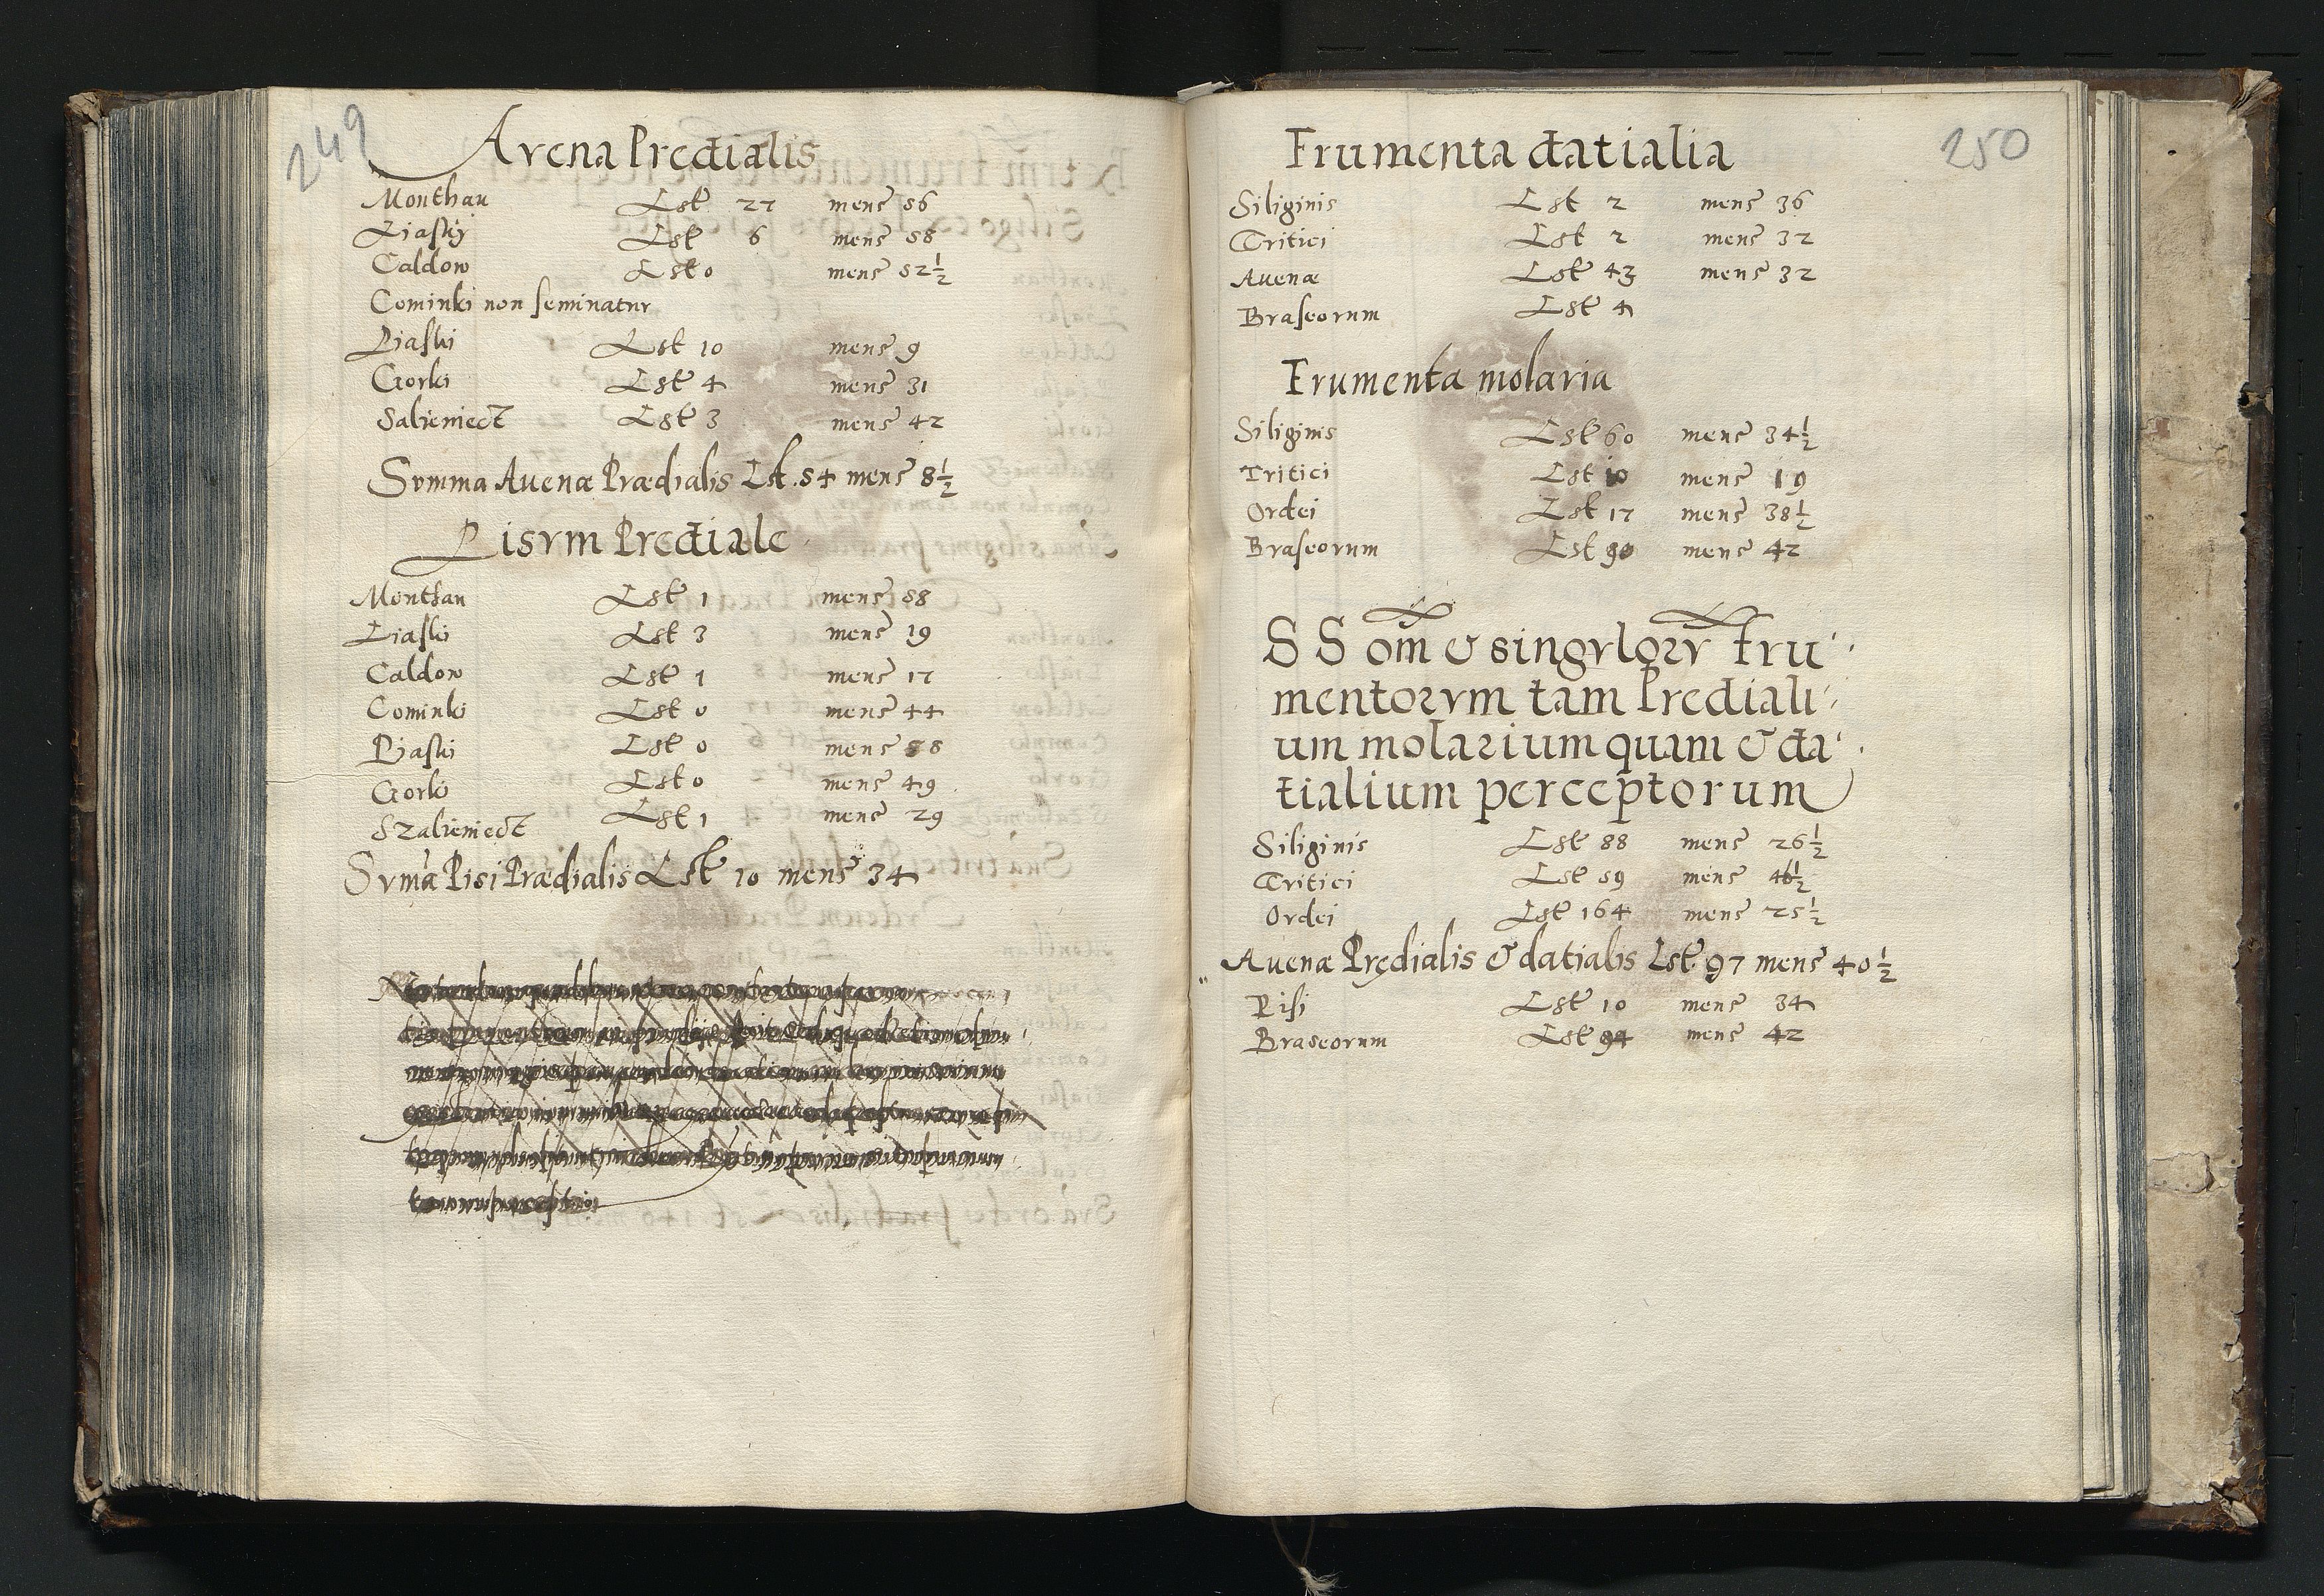 249
Avena Predialis
Monthau Lst 27 mens 56
Liasky Lst 6 mens 58
Caldow Lst 0 mens 52½
Cominki non seminatur
Piaski Lst 10 mens 9
Gorki Lst 4 mens 31
Salieniect Lst 3 mens 42
Svmma Auenæ Prædialis Lst. 54 mens 8½
Pisvm Prediale
Monthau Lst 1 mens 58
Liaski Lst 3 mens 19
Caldow Lst 1 mens 17
Cominki Lst 0 mens 44
Piaski Lst 0 mens 58
Gorki Lst 0 mens 49
Szalieniect Lst 1 mens 29
Svma Pisi Prædialis Lst 10 mens 34
250
Frumenta datialia
Siliginis Lst 2 mens 36
Tritici Lst 2 mens 32
Auenæ Lst 43 mens 32
Braseorum Lst 4
Frumenta molaria
Siliginis Lst 60 mens 34½
Tritici Lst 10 mens 19
Ordei Lst 17 mens 38½
Braseorum Lst 90 mens 42
S S om̄ & singvlorv fru
mentorvm tam Prediali
um molarium quam & da
tialium perceptorum
Siliginis Lst 88 mens 26½
Tritici Lst 59 mens 46½
Ordei Lst 164 mens 25½
Auenæ Prędialis & datialis Lst. 97 mens 40½
Pisi Lst 10 mens 34
Braseorum Lst 94 mens 42